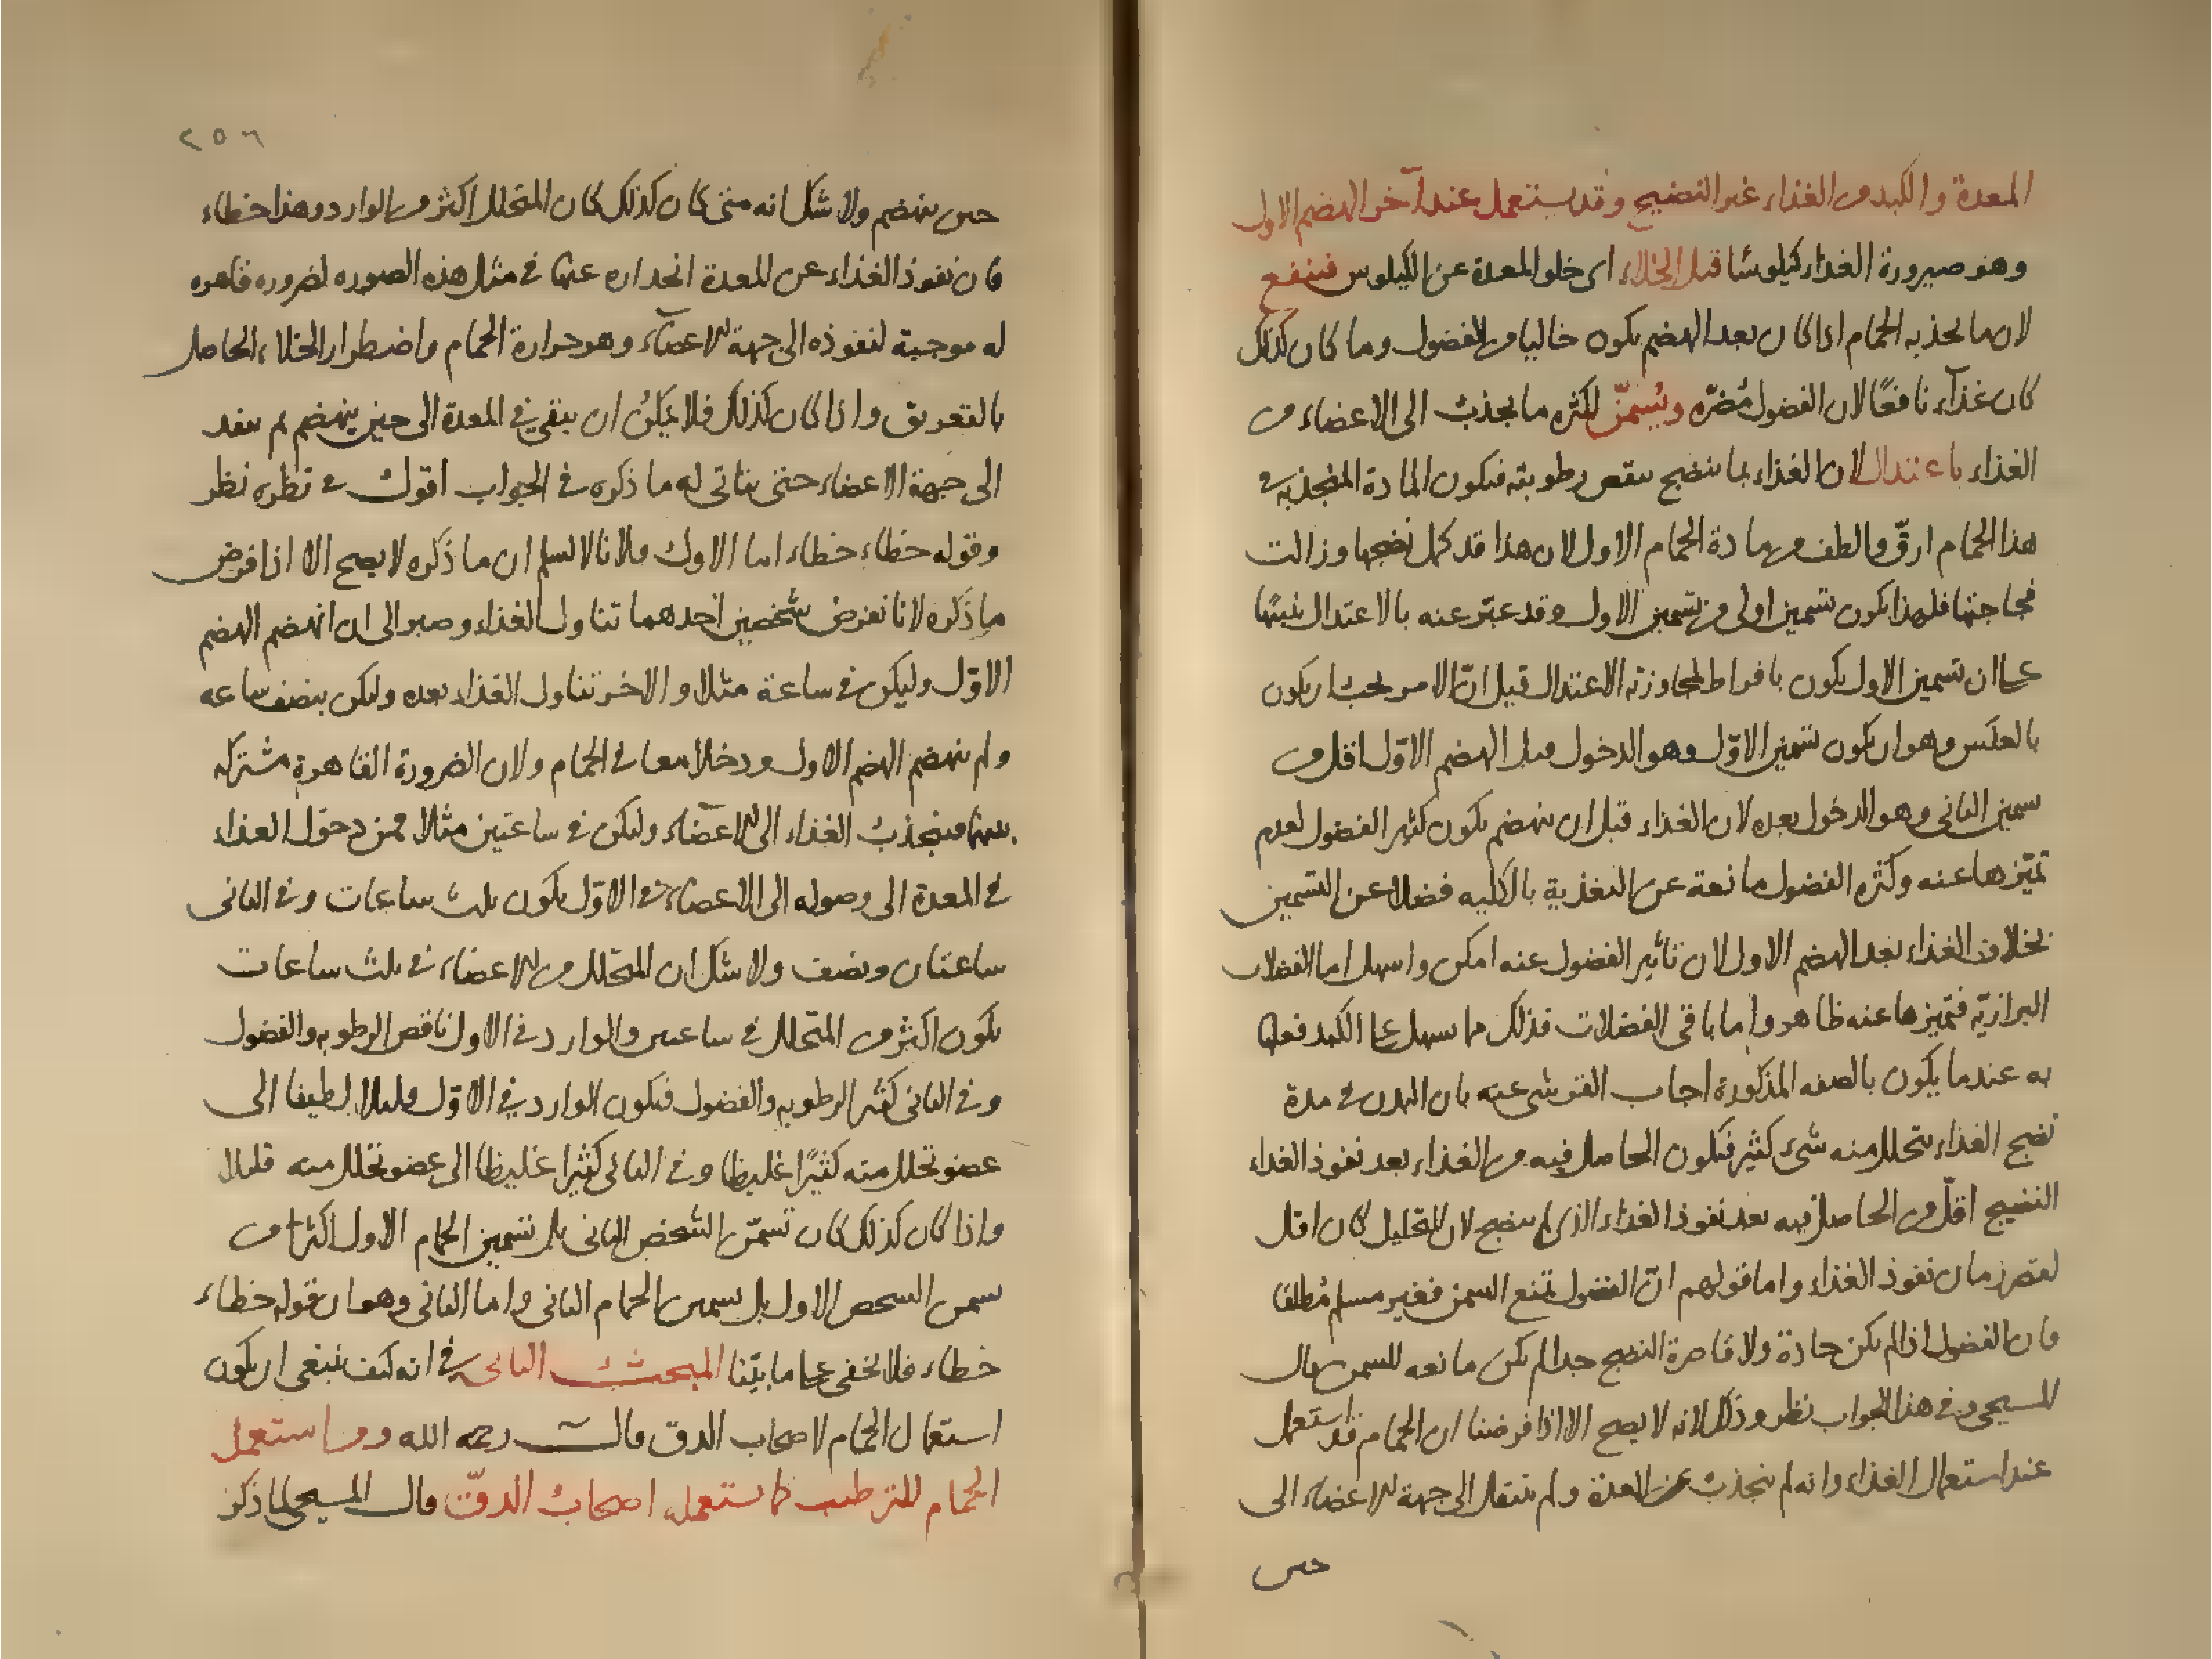 المعدة والكبد من الغذاء غير النضيج وقد يستعمل عند آخر الهضم الاول
وهو صيرورة الغذاء كيلوسا قبل الخلاء اى خلو المعدة عن الكيلوس فينفع
لان ما يجذبه الحمام اذا كان بعد الهضم يكون خاليا من الفضول وما كان كذلك
كان غذآء نافعًا لان الفضول مُضرّه ويُسمنّ لكثره ما يجذب الى الاعضاء من
الغذاء باعتدال لان الغذاء بما ينضج ينقص رطوبته فيكون المادة المنجذبه في
هذا الحمام ارقّ والطف من مادة الحمام الاول لان هذا قد كمل نضجها وزالت
فجاجتها فلهذا يكون تسمين اولى من تسمين الاول وقد عبّر عنه بالاعتدال تنبيها
على ان تسمين الاول يكون بافراط لمجاوزته الاعتدال قيل انّ الامر يجب ان يكون
بالعكس وهو ان يكون تسمين الاوّل وهو الدخول قبل الهضم الاوّل اقل من
تسمين الثانى وهو الدخول بعده لان الغذاء قبل ان ينهضم يكون كثير الفضول لعدم
تميّزها عنه وكثره الفضول مانعة عن التغذية بالكليه فضلا عن التسمين
بخلاف الغذاء بعد الهضم الاول لان تأثير الفضول عنه امكن واسهل اما الفضلات
البرازيّه فتميزها عنه ظاهر واما باقى الفضلات فذلك مما يسهل على الكبد فعلها
به عندما يكون بالصفه المذكورة اجاب القرشى عنه بان البدن في مدة
نضج الغذاء يتحلل منه شىء كثير فيكون الحاصل فيه من الغذاء بعد نفوذ الغذاء
النضيج اقلّ من الحاصل فيه بعد نفوذ الغذاء الذى لم ينضج لان التحليل كان اقل
لقصر زمان نفوذ الغذاء واما قولهم انّ الفضول تمنع السمن فغير مسلم مُطلقا
فان الفضول اذا لم يكن حادة ولا قاصرة النضج جدا لم يكن مانعه للسمن قال
المسيحى وفي هذا الجواب نظر وذلك لانه لا يصح الا اذا فرضنا ان الحمام قد استعمل
عند استعمال الغذاء وانه لم ينجذب عن المعدة ولم ينتقل الى جهة الاعضاء الى
حين
٢٥٦
حين ينهضم ولا شك انه متى كان كذلك كان المتحلل اكثر من الوارد وهذا خطاء
فان نفوذ الغذاء عن المعدة انحداره عنها في مثل هذه الصوره لضروره قاهره
له موجبة لنفوذه الى جهة الاعضآء وهو حرارة الحمام واضطرار الخلاء الحاصل
بالتعريق واذا كان كذلك فلا يمكن ان يبقى في المعدة الى حين ينهضم ثم ينفد
الى جهة الاعضاء حتى يتاتى له ما ذكره في الجواب اقول في نظره نظر
وقوله خطاء خطاء اما الاول فلانا لا نسلم ان ما ذكره لا يصح الا اذا فرض
ما ذكره لانا نفرض شخصين احدهما تناول الغذاء وصبر الى ان انهضم الهضم
الاوّل وليكن في ساعة مثلا والاخر تناول الغذاء بعده وليكن بنصف ساعه
ولم ينهضم الهضم الاول ودخلا معا في الحمام ولان الضرورة القاهرة مشتركه
بينهما فينجذب الغذاء الى الاعضآء وليكن في ساعتين مثلا فمن دخول الغذاء
في المعدة الى وصوله الى الاعضاء في الاوّل يكون ثلث ساعات وفي الثانى
ساعتان ونصف ولا شك ان المتحلل من الاعضاء في ثلث ساعات
يكون اكثر من المتحلل في ساعتين والوارد في الاول ناقص الرطوبه والفضول
وفي الثانى كثير الرطوبه والفضول فيكون الوارد في الاوّل قليلا لطيفا الى
عضو تحلل منه كثيرًا غليظا وفي الثانى كثيرا غليظا الى عضو تحلل منه قليلا
واذا كان كذلك كان تسمّن الشخص الثانى بل تسمين الحمام الاول اكثر من
سمن الشخص الاول بل تسمين الحمام الثانى واما الثانى وهو ان قوله خطاء
خطاء فلا يخفى على ما بيّنا المبحث الثانى في انه كيف ينبغى ان يكون
استعمال الحمام لاصحاب الدق قال رحمه الله ومن استعمل
الحمام للترطيب كما يستعمله اصحاب الدقّ قال المسيحى لما ذكر